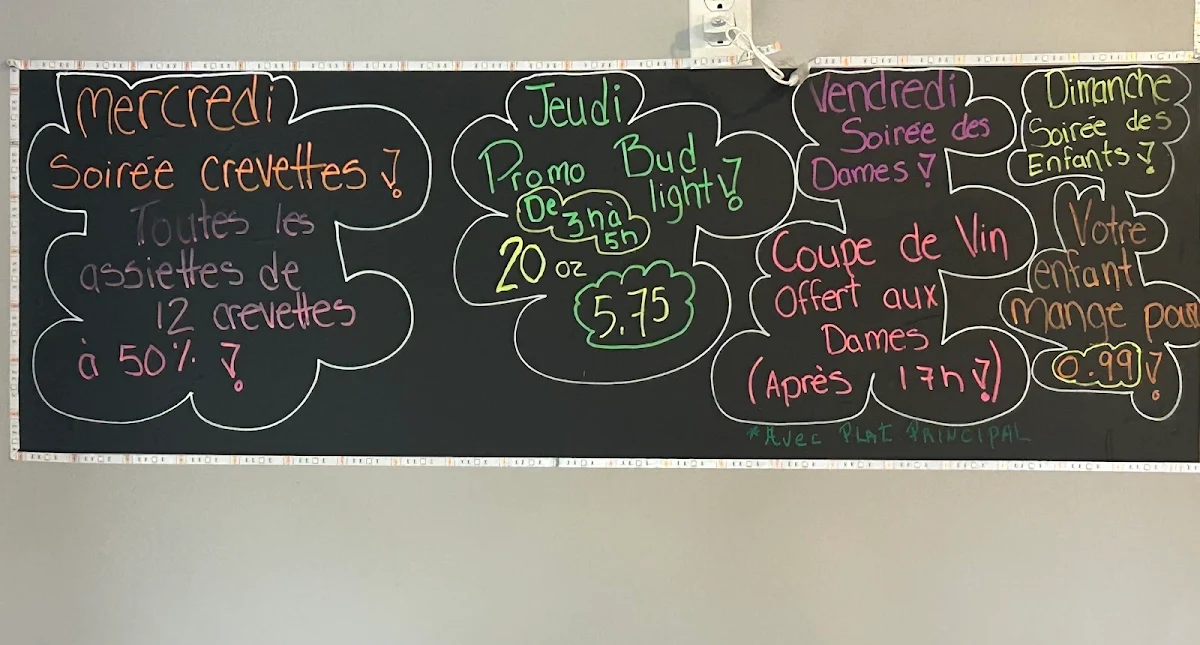 Mercredi
Soirée crevettes !
Toutes les
assiettes de
12 crevettes
à 50% !
Jeudi
Promo Bud
light !
De
3h à
5h
20 oz
5.75
Vendredi
Soirée des
Dames !
Coupe de Vin
Offert aux
Dames
(Après 17h !)
*AVEC PLAT PRINCIPAL
Dimanche
Soirée des
Enfants !
Votre
enfant
mange pour
0.99 !